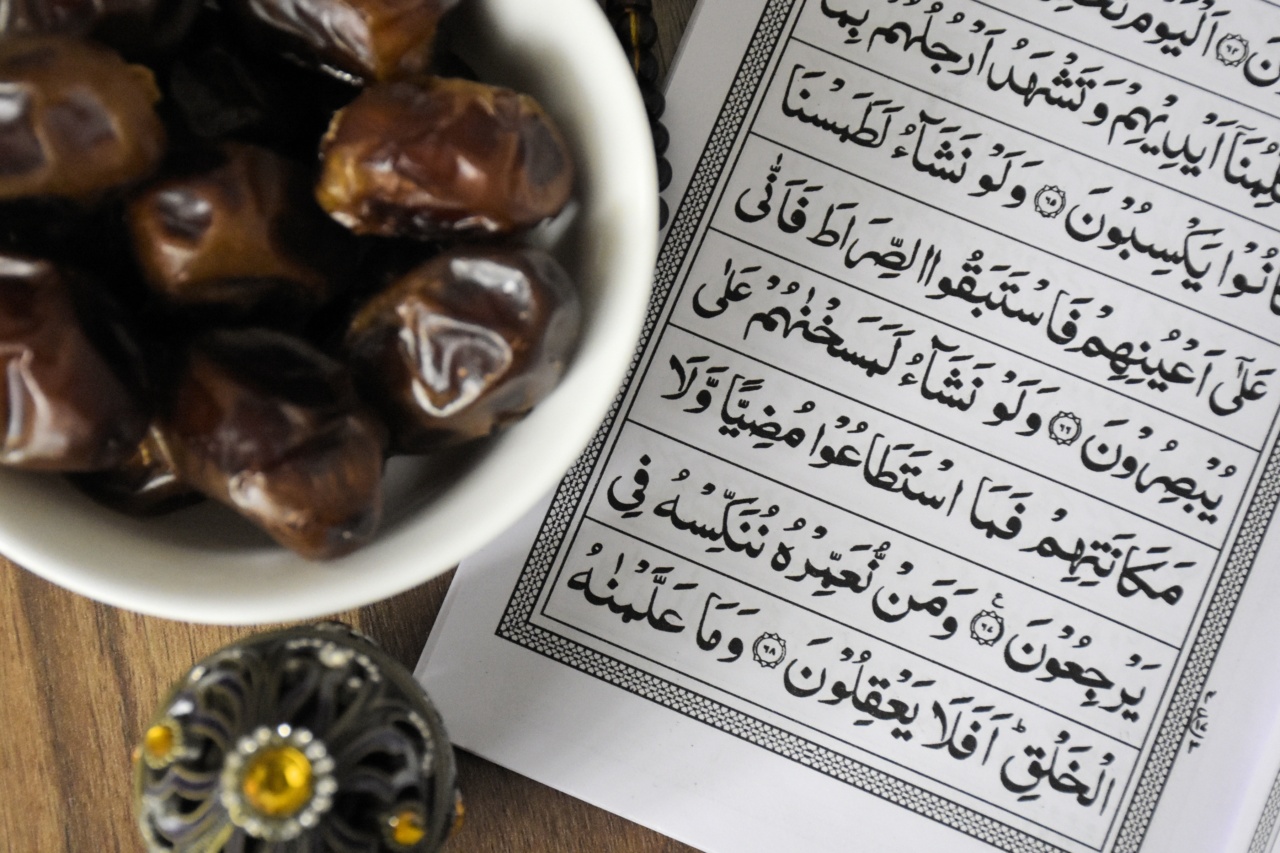 اَلْيَوْمَ
اَيْدِيْهِمْ وَتَشْهَدُ اَرْجُلُهُمْ بِمَا
انُوْا يَكْسِبُوْنَ ﴿٦٥﴾ وَلَوْ نَشَآءُ لَطَمَسْنَا
عَلٰٓى اَعْيُنِهِمْ فَاسْتَبَقُوا الصِّرَاطَ فَاَنّٰى
يُبْصِرُوْنَ ﴿٦٦﴾ وَلَوْ نَشَآءُ لَمَسَخْنٰهُمْ عَلٰى
مَكَانَتِهِمْ فَمَا اسْتَطَاعُوْا مُضِيًّا وَّلَا
يَرْجِعُوْنَ ﴿٦٧﴾ ع وَمَنْ نُّعَمِّرْهُ نُنَكِّسْهُ فِى
الْخَلْقِ ؕ اَفَلَا يَعْقِلُوْنَ ﴿٦٨﴾ وَمَا عَلَّمْنٰهُ